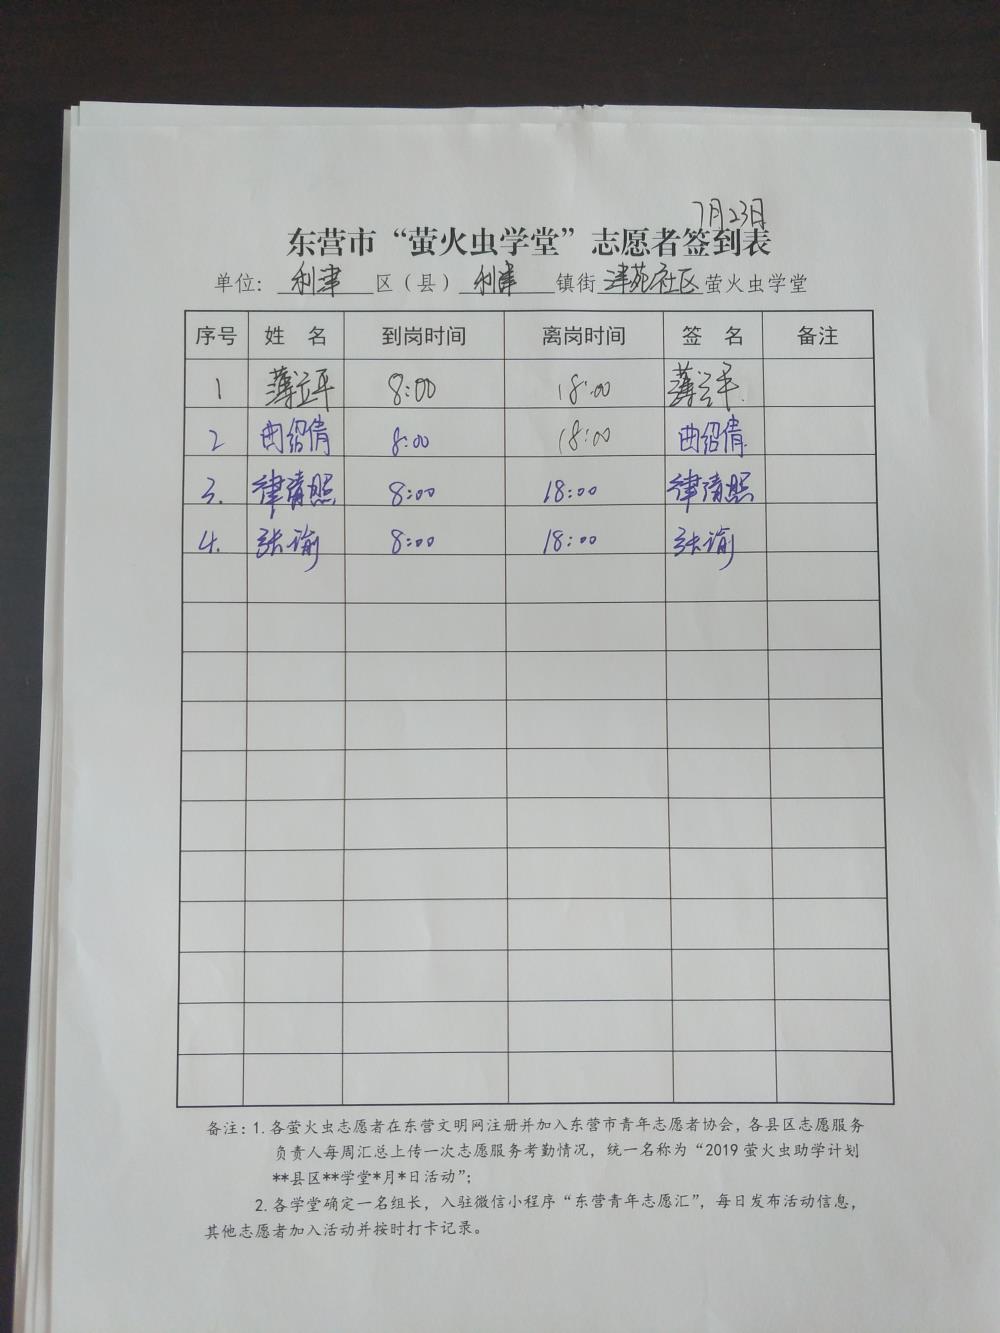 7月23日
东营市“萤火虫学堂”志愿者签到表
单位: 利津 区（县） 利津 镇街 津苑社区 萤火虫学堂
序号 姓 名 到岗时间 离岗时间 签 名 备注
1 薄兰平 8:00 18:00 薄兰平
2 曲绍倩 8:00 18:00 曲绍倩
3. 律清照 8:00 18:00 律清照
4. 张谕 8:00 18:00 张谕
备注: 1. 各萤火虫志愿者在东营文明网注册并加入东营市青年志愿者协会，各县区志愿服务
负责人每周汇总上传一次志愿服务考勤情况，统一名称为“2019萤火虫助学计划
**县区**学堂*月*日活动”；
2. 各学堂确定一名组长，入驻微信小程序“东营青年志愿汇”，每日发布活动信息，
其他志愿者加入活动并按时打卡记录。